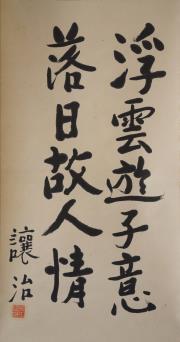 浮雲遊子意
落日故人情
瀼治